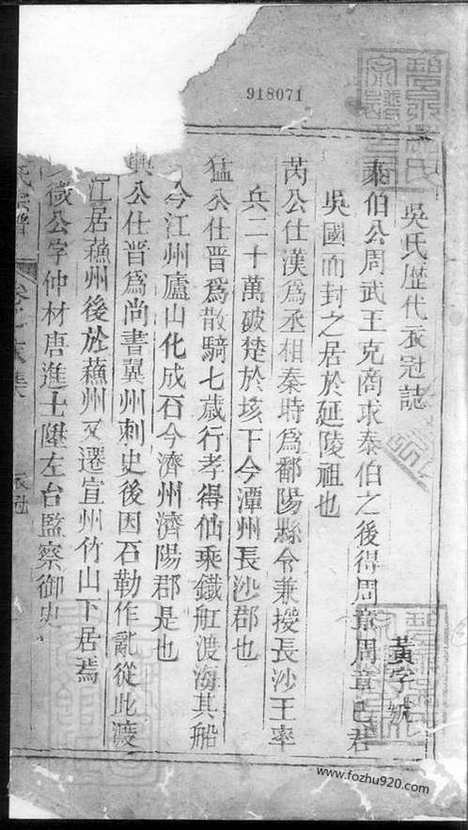 918071
吳氏歷代衣冠誌
黃字號
泰伯公周武王克商求泰伯之後得周章周章已君
吳國而封之居於延陵祖也
芮公仕漢爲丞相秦時爲鄱陽縣令兼授長沙王率
兵二十萬破楚於垓下今潭州長沙郡也
猛公仕晉爲散騎七歲行孝得仙乘鐵舡渡海其船
今江州廬山化成石今濟州濟陽郡是也
公仕晉爲尚書冀州刺史後因石勒作亂從此渡
江居蘓州後於蘓州又遷宣州竹山下居焉
公字仲材唐進士陞左台監察御史
www.fozhu920.com